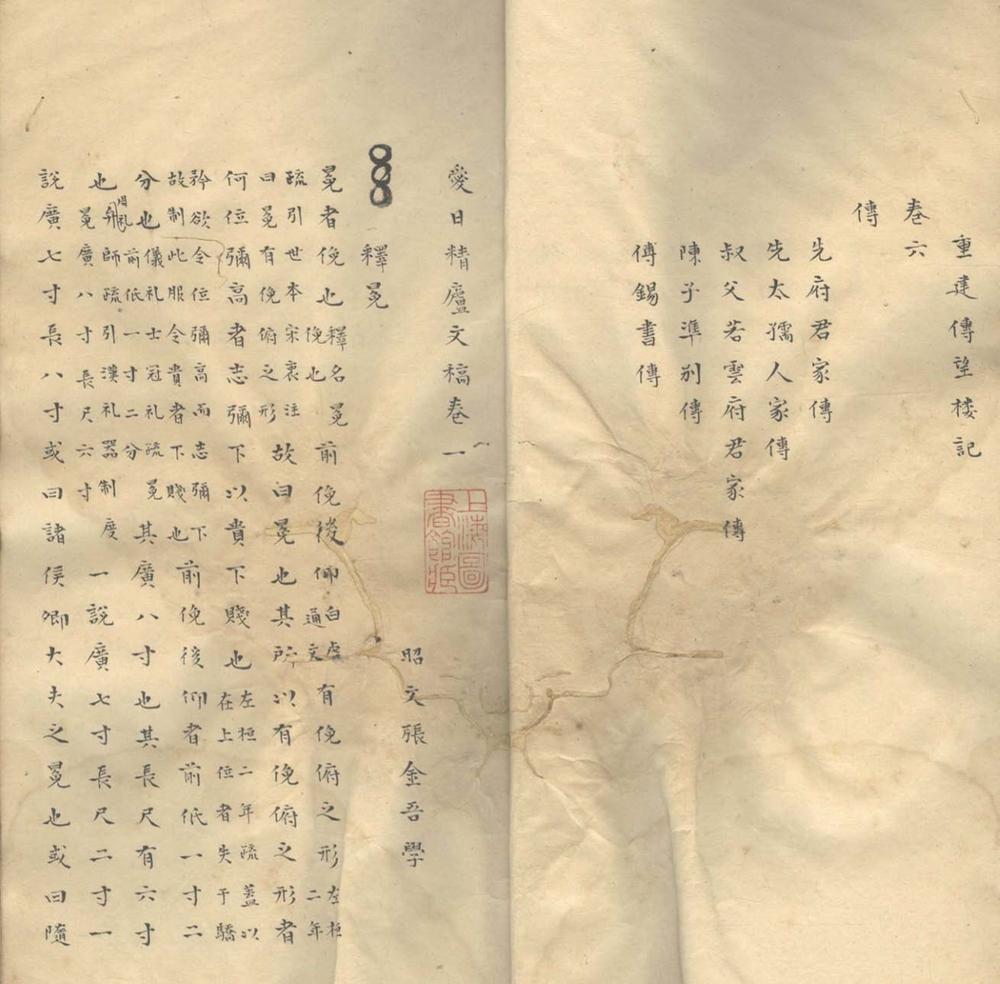 重建傳望樓記
卷六
傳
先府君家傳
先太孺人家傳
叔父若雲府君家傳
陳子準別傳
傅錫書傳
愛日精廬文稿卷一
上海圖書館藏
昭文張金吾學
釋冕
冕者俛也釋名冕俛也前俛後仰白虎通文有俛俯之形左桓二年
疏引世本宋衷注曰冕有俛俯之形故曰冕也其所以有俛俯之形者
何位彌高者志彌下以貴下賤也左桓二年疏蓋以在上位者失于驕
矜欲令位彌高而志彌下故制此服令貴者下賤也前俛後仰者前低一寸二
分也儀礼士冠礼疏冕前低一寸二分其廣八寸也其長尺有六寸
也周礼弁師疏引漢礼器制度冕廣八寸長尺六寸一說廣七寸長尺二寸一
說廣七寸長八寸或曰諸侯卿大夫之冕也或曰隨